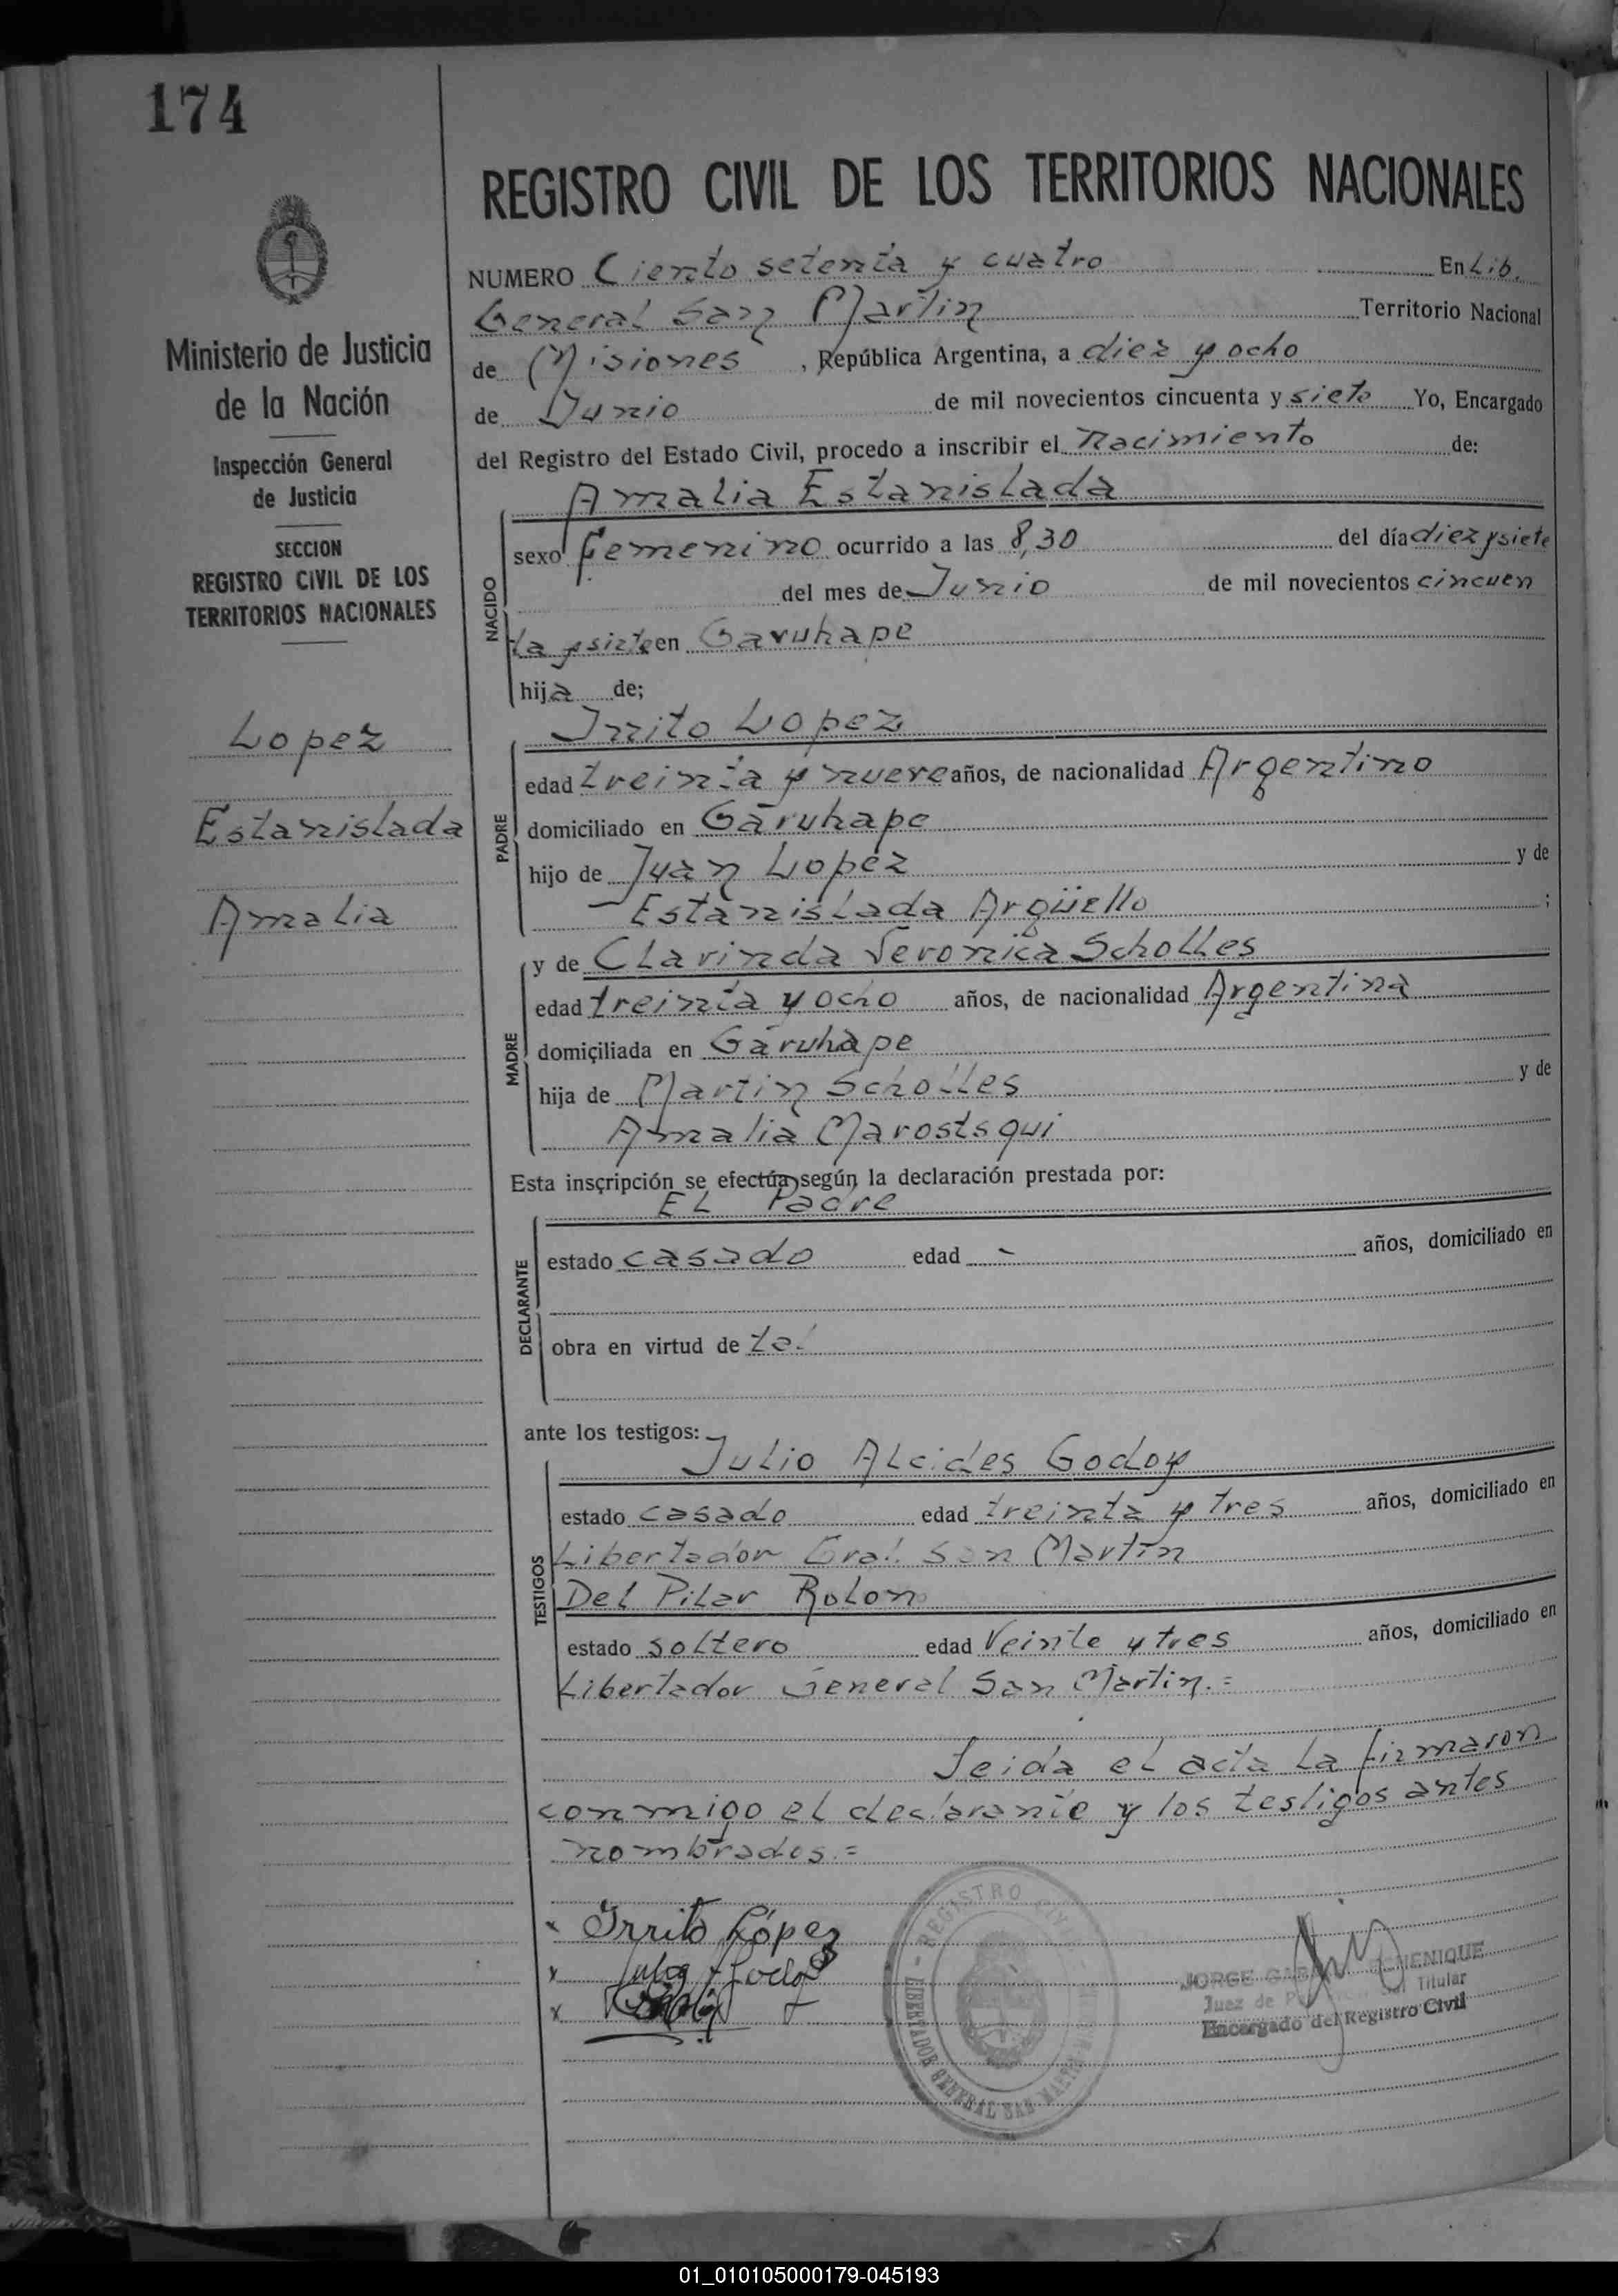 174
REGISTRO CIVIL DE LOS TERRITORIOS NACIONALES
Ministerio de Justicia
de la Nación
Inspección General
de Justicia
SECCION
REGISTRO CIVIL DE LOS
TERRITORIOS NACIONALES
Lopez
Estanislada
Amalia
NUMERO Ciento setenta y cuatro En Lib.
General San Martin Territorio Nacional
de Misiones, República Argentina, a diez y ocho
de Junio de mil novecientos cincuenta y siete Yo, Encargado
del Registro del Estado Civil, procedo a inscribir el Nacimiento de:
Amalia Estanislada
NACIDO
sexo femenino ocurrido a las 8,30 del día diez y siete
del mes de Junio de mil novecientos cincuen
ta y siete en Garuhape
hija de;
Irrito Lopez
PADRE
edad treinta y nueve años, de nacionalidad Argentino
domiciliado en Garuhape
hijo de Juan Lopez y de
Estanislada Argüello ;
y de Clarinda Veronica Scholles
MADRE
edad treinta y ocho años, de nacionalidad Argentina
domiciliada en Garuhape
hija de Martin Scholles y de
Amalia Marostsqui
Esta inscripción se efectúa según la declaración prestada por:
El Padre
DECLARANTE
estado casado edad - años, domiciliado en
obra en virtud de tal
ante los testigos:
Julio Alcides Godoy
TESTIGOS
estado casado edad treinta y tres años, domiciliado en
Libertador Gral. San Martin
Del Pilar Rolon
estado soltero edad Veinte y tres años, domiciliado en
Libertador General San Martin.=
Leida el acta la firmaron
conmigo el declarante y los testigos antes
nombrados.=
x Irrito López
x
x
REGISTRO CIVIL
LIBERTADOR GENERAL SAN MARTIN
JORGE
Juez de Titular
Encargado del Registro Civil
01_010105000179-045193